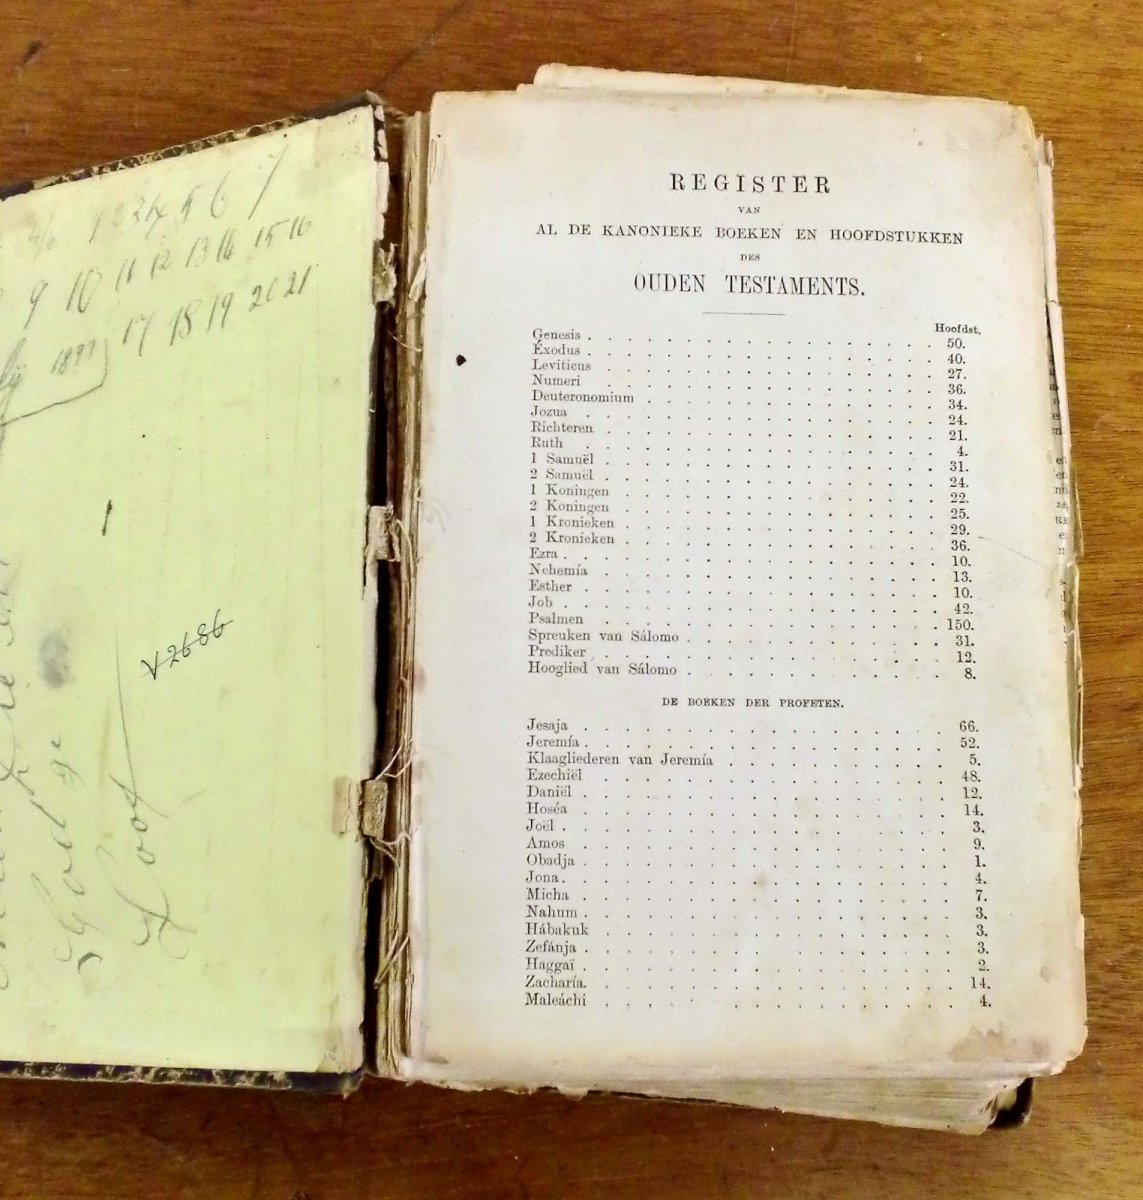 1 2 3 4 5 6 7
9 10 11 12 13 14 15 16
1897 17 18 19 20 21
V 2686
God
Loof
REGISTER
VAN
AL DE KANONIEKE BOEKEN EN HOOFDSTUKKEN
DES
OUDEN TESTAMENTS.
Hoofdst.
Genesis . . . . . . . . . . . . . . . . . 50.
Éxodus . . . . . . . . . . . . . . . . . 40.
Leviticus . . . . . . . . . . . . . . . . 27.
Numeri . . . . . . . . . . . . . . . . 36.
Deuteronomium . . . . . . . . . . . . . . 34.
Jozua . . . . . . . . . . . . . . . . . 24.
Richteren . . . . . . . . . . . . . . . . 21.
Ruth . . . . . . . . . . . . . . . . . 4.
1 Samuël . . . . . . . . . . . . . . . . 31.
2 Samuël . . . . . . . . . . . . . . . . 24.
1 Koningen . . . . . . . . . . . . . . . 22.
2 Koningen . . . . . . . . . . . . . . . 25.
1 Kronieken . . . . . . . . . . . . . . . 29.
2 Kronieken . . . . . . . . . . . . . . . 36.
Ezra . . . . . . . . . . . . . . . . . . 10.
Nehemía . . . . . . . . . . . . . . . . 13.
Esther . . . . . . . . . . . . . . . . . 10.
Job . . . . . . . . . . . . . . . . . . 42.
Psalmen . . . . . . . . . . . . . . . . 150.
Spreuken van Sálomo . . . . . . . . . . . . 31.
Prediker . . . . . . . . . . . . . . . . 12.
Hooglied van Sálomo . . . . . . . . . . . . 8.
DE BOEKEN DER PROFETEN.
Jesaja . . . . . . . . . . . . . . . . . 66.
Jeremía . . . . . . . . . . . . . . . . . 52.
Klaagliederen van Jeremía . . . . . . . . . . . 5.
Ezechiël . . . . . . . . . . . . . . . . 48.
Daniël . . . . . . . . . . . . . . . . . 12.
Hoséa . . . . . . . . . . . . . . . . . 14.
Joël . . . . . . . . . . . . . . . . . . 3.
Amos . . . . . . . . . . . . . . . . . 9.
Obadja . . . . . . . . . . . . . . . . . 1.
Jona . . . . . . . . . . . . . . . . . . 4.
Micha . . . . . . . . . . . . . . . . . 7.
Nahum . . . . . . . . . . . . . . . . . 3.
Hábakuk . . . . . . . . . . . . . . . . 3.
Zefánja . . . . . . . . . . . . . . . . . 3.
Haggaï . . . . . . . . . . . . . . . . . 2.
Zacharía. . . . . . . . . . . . . . . . . 14.
Maleáchi . . . . . . . . . . . . . . . . 4.